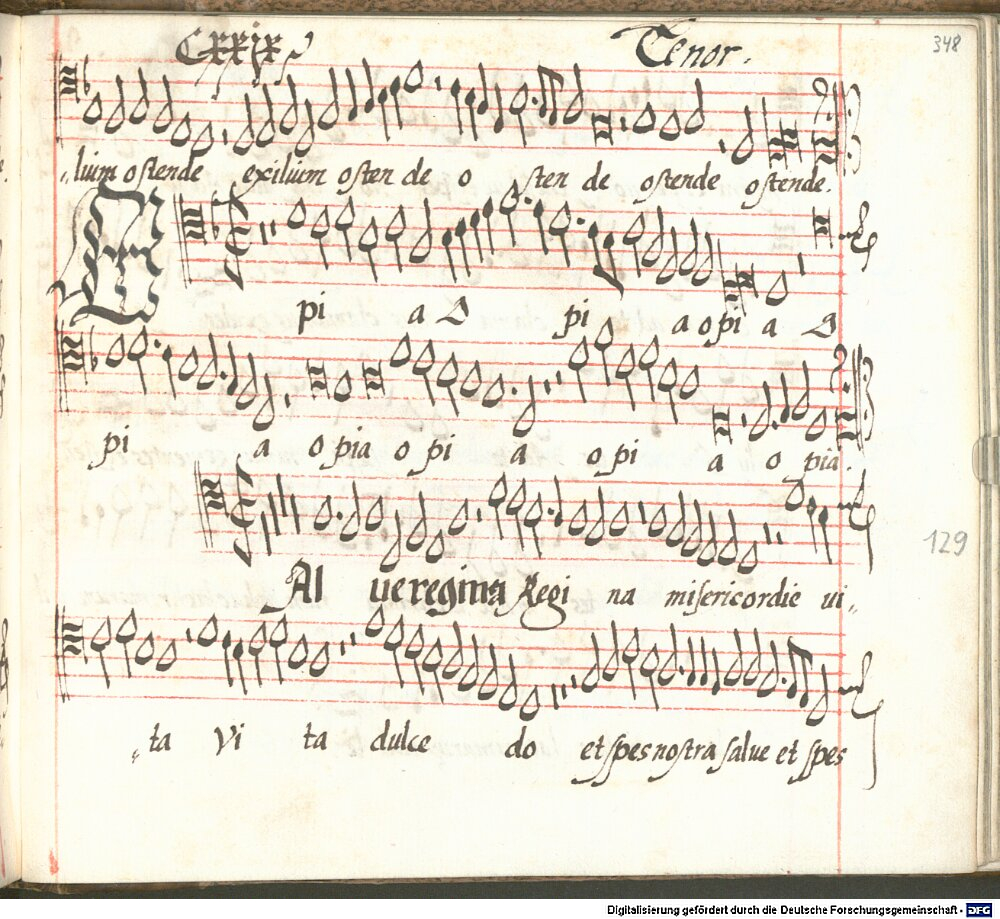 CXXIX Tenor. 348
lium ostende exilium osten de o sten de ostende ostende.
O pi a O pi a o pi a O
pi a o pia o pi a o pi a o pia.
129
Al ue regina Regi na misericordie ui„
„ta Vi ta dulce do et spes nostra salue et spes
Digitalisierung gefördert durch die Deutsche Forschungsgemeinschaft - DFG